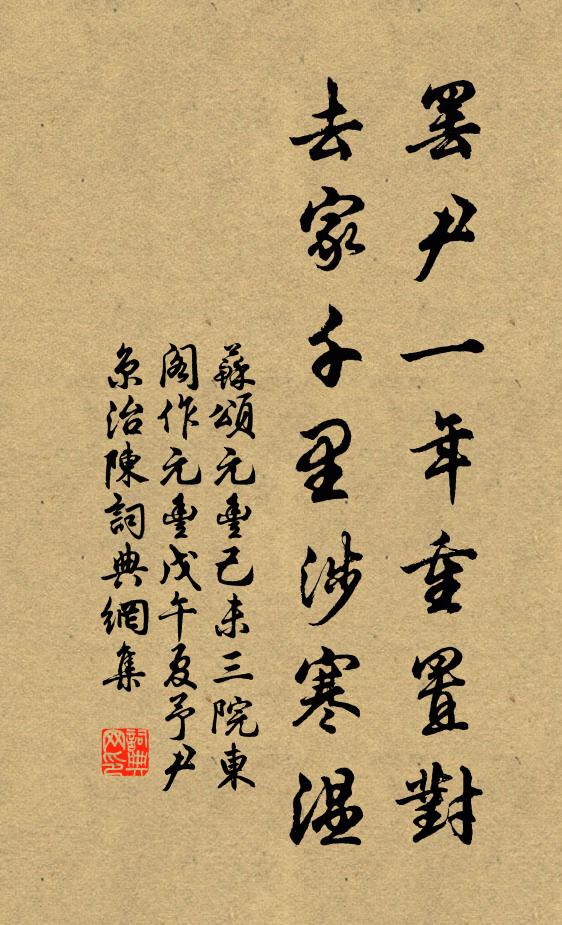 罷尹一年重置對
去家千里涉寒温
蘇頌元豐己未三院東
閣作元豐戊午夏予尹
京治陳詞典網集
詞典网印